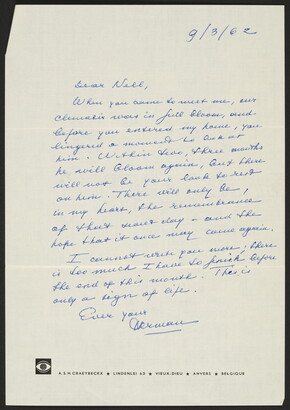 9/3/62
Dear Nell,
When you came to meet me, our
clematis was in full bloom, and
before you entered my home, you
lingered a moment to look at
him. Within two, three months
he will bloom again, but there
will not be your look to rest
on him. There will only be,
in my heart, the remembrance
of that day - and the
hope that it once may come again.
I cannot write you more: there
is too much I have to finish before
the end of this month. This is
only a sign of life.
Ever yours
Herman
A.S.H. CRAEYBECKX • LINDENLEI 63 • VIEUX-DIEU • ANVERS • BELGIQUE